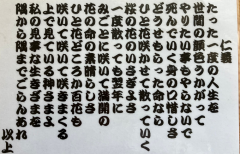 仁義
たった一度の人生を
世間の顔色うかがって
やりたいこともやらないで
死んでいく身の口惜しさ
どうせもらった命なら
ひと花咲かせて散っていく
桜の花のいさぎよさ
一度散っても翌年に
みごとに咲いて満開の
花の命の素晴らしさ
ひと花どころか百花も
咲いて咲いて咲きまくる
上で見ている神さまよ
私の見事な生きざまを
隅から隅までごらんあれ
以上